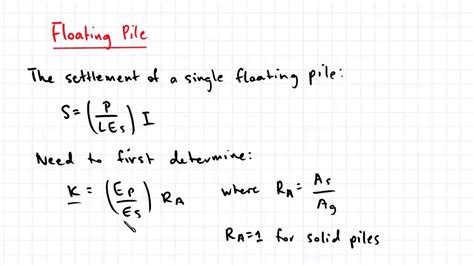 Floating Pile
The settlement of a single floating pile:
S = (P / LEs) I
Need to first determine:
K = (Ep / Es) RA where RA = As / Ag
RA=1 for solid piles